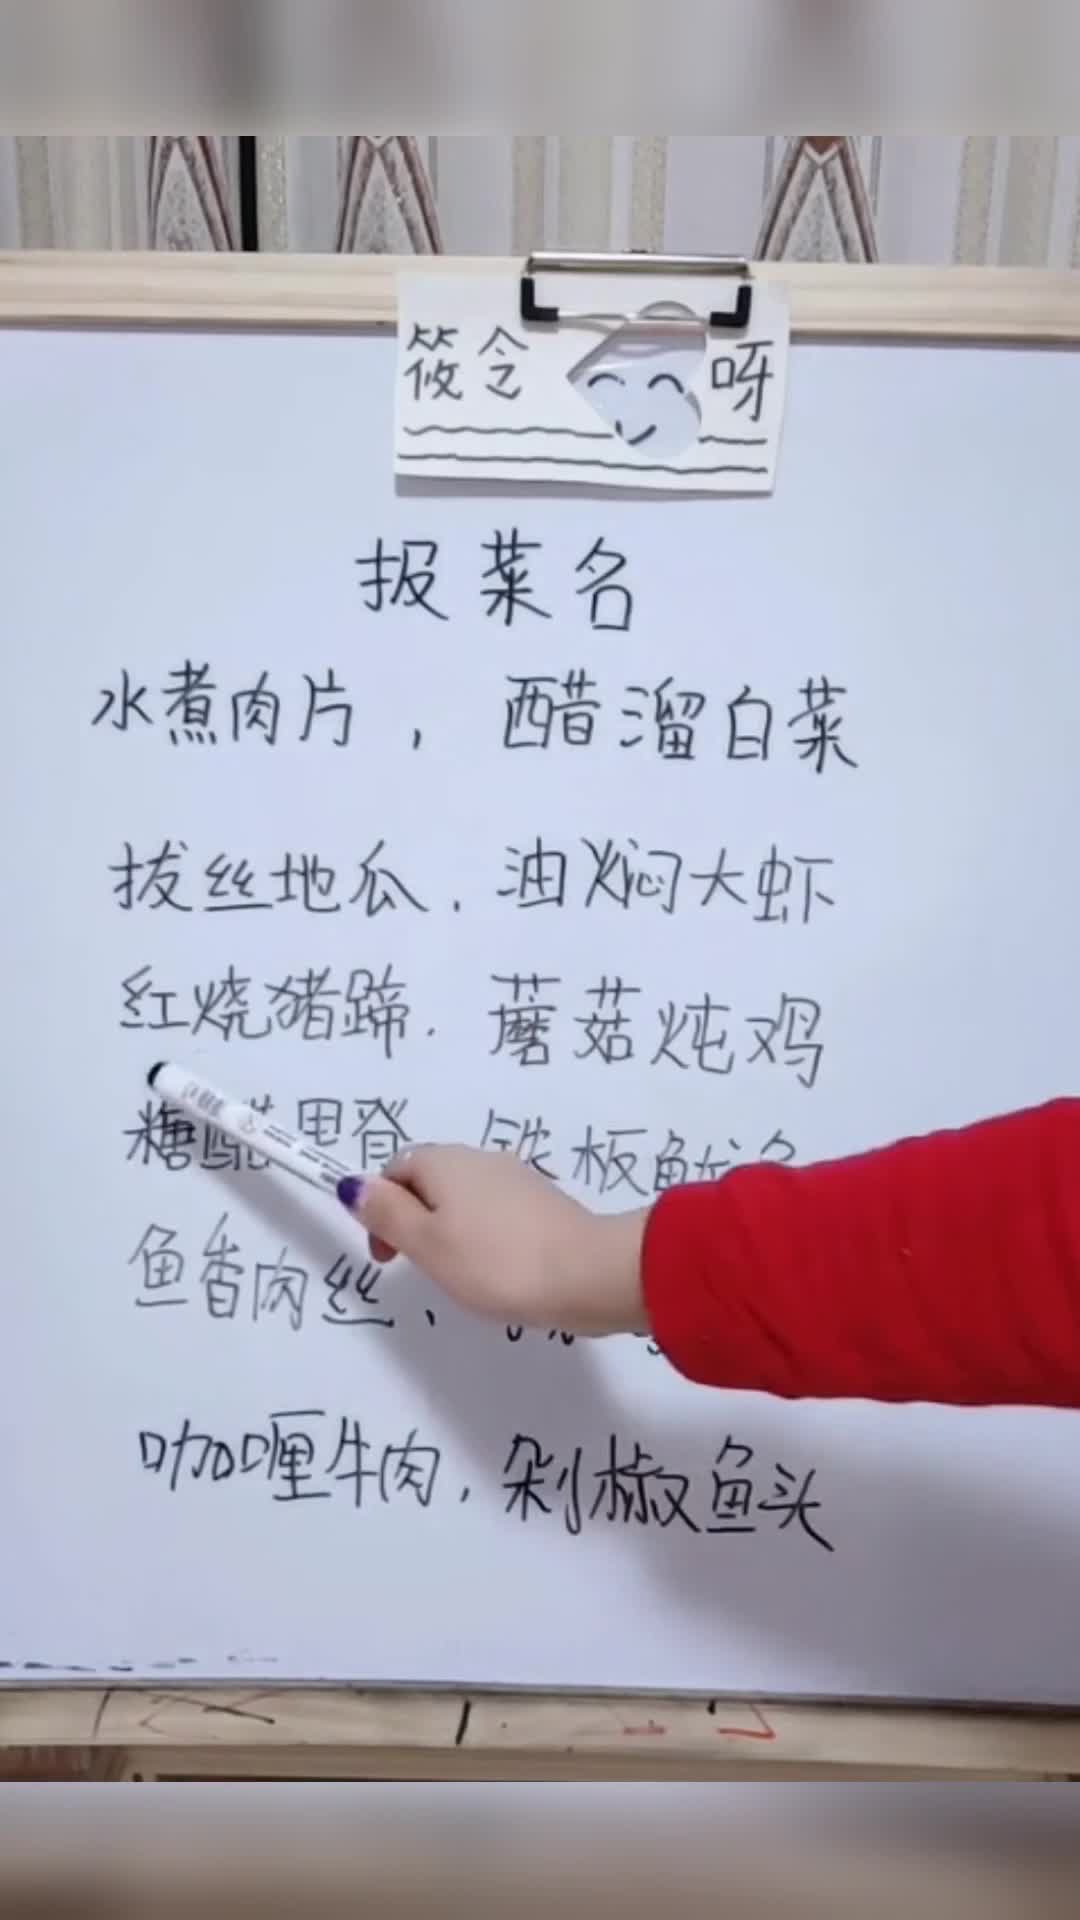 筱令 呀
报菜名
水煮肉片，醋溜白菜
拔丝地瓜．油焖大虾
红烧猪蹄．蘑菇炖鸡
糖醋里脊．铁板鱿鱼
鱼香肉丝、
咖喱牛肉，剁椒鱼头